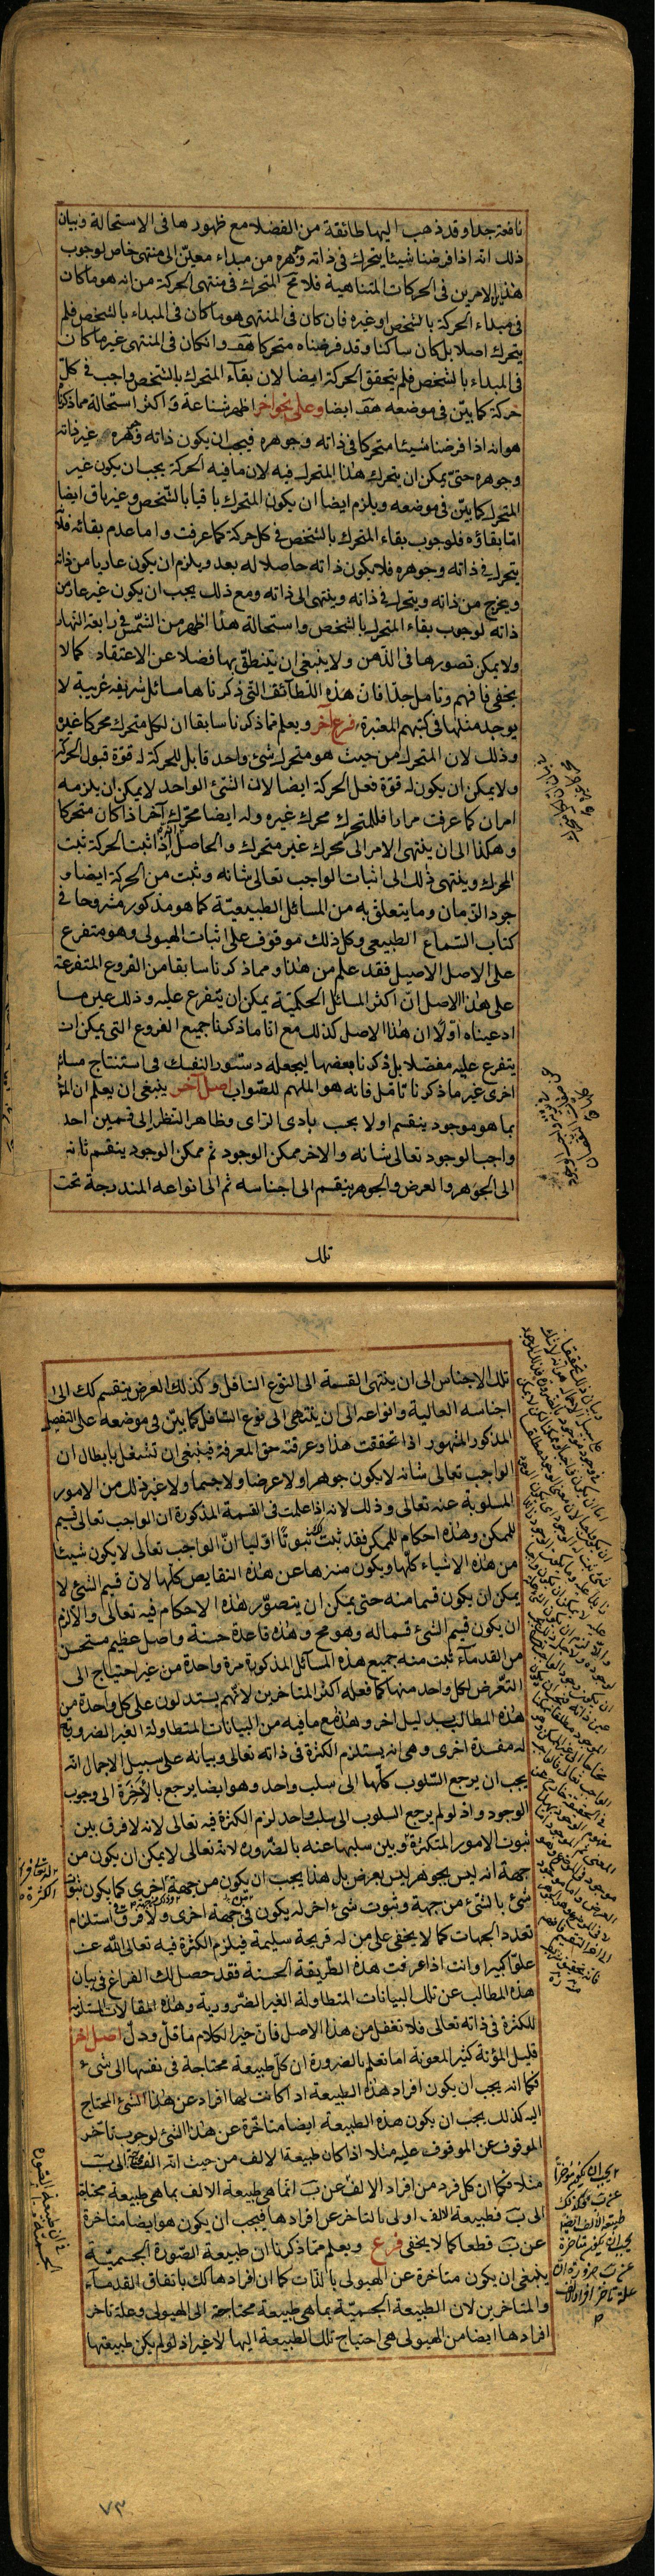 نافعة جدا وقد ذهب اليها طائفة من الفضلاء مع ظهورها فى الاستحالة وبيان
ذلك انه اذا فرضنا شيئا يتحرك فى ذاته وجوهره من مبداء معيّن الى منتهى خاص لوجوب
هذين الامرين فى الحركات المتناهية فلا مح المتحرك فى منتهى الحركة من انه هو ما كان
فى مبداء الحركة بالشخص او غيره فان كان فى المنتهى هو ما كان فى المبداء بالشخص فلم
يتحرك اصلا بل كان ساكنا وقد فرضناه متحركا هف وان كان فى المنتهى غير ما كان
فى المبداء بالشخص فلم يتحقق الحركة ايضا لان بقاء المتحرك بالشخص واجب فى كلّ
حركة كما بيّن فى موضعه هف ايضا وعلى نحو اخر اظهر شناعة واكثر استحالة مما ذكرنا
هو انه اذا فرضنا شيئا متحركا فى ذاته وجوهره فيجب ان يكون ذاته وجوهره غير ذاته
وجوهره حتى يمكن ان يتحرك هذا المتحرك فيه لان ما فيه الحركة يجب ان يكون غير
المتحرك كما بيّن فى موضعه ويلزم ايضا ان يكون المتحرك باقيا بالشخص وغير باق ايضا
امّا بقاؤه فلوجوب بقاء المتحرك بالشخص فى كل حركة كما عرفت واما عدم بقائه فلانّه
يتحرك فى ذاته وجوهره فلا يكون ذاته حاصلا له بعد ويلزم ان يكون عاريا من ذاته
ويخرج من ذاته ويتحرك فى ذاته وينتهى الى ذاته ومع ذلك يجب ان يكون غير عار من
ذاته لوجوب بقاء المتحرك بالشخص واستحالة هذا اظهر من الشّمس فى رابعة النهار
ولا يمكن تصورها فى الذهن ولا ينبغى ان يتنطّق بها فضلا عن الاعتقاد كما لا
يخفى فافهم وتامل جدّا فان هذه اللطائف التى ذكرناها مسائل شريفة غريبة لا
يوجد مثلها فى كتبهم المعتبرة فرع آخر ويعلم مما ذكرنا سابقا ان لكل متحرك محركا غيره
وذلك لان المتحرك من حيث هو متحرك شئ واحد قابل للحركة له قوّة قبول الحركة
ولا يمكن ان يكون له قوّة فعل الحركة ايضا لان الشئ الواحد لا يمكن ان يلزمه
امران كما عرفت مرارا فللمتحرك محرك غيره وله ايضا محرّك آخر اذا كان متحركا
وهكذا الى ان ينتهى الامر الى محرك غير متحرك والحاصل اذا اثبت الحركة ثبت
المحرك وينتهى ذلك الى اثبات الواجب تعالى شانه وثبت من الحركة ايضا و
جود الزمان وما يتعلق به من المسائل الطبيعيّة كما هو مذكور مشروحا فى
كتاب السّماع الطبيعى وكل ذلك موقوف على اثبات الهيولى وهو متفرع
على الاصل الاصيل فقد علم من هذا ومما ذكرنا سابقا من الفروع المتفرعة
على هذا الاصل انّ اكثر المسائل الحكميّة يمكن ان يتفرع عليه وذلك عين ما
ادعيناه اوّلا ان هذا الاصل كذلك مع انا ما ذكرنا جميع الفروع التى يمكن ان
يتفرع عليه مفصّلا بل ذكرنا بعضها ليجعله دستور النفسك فى استنتاج مسائل
اخرى غير ما ذكرنا تامّل فانه هو الملهم للصّواب اصل آخر ينبغى ان يعلم ان
بما هو موجود ينقسم اولا بحسب بادى الراى وظاهر النظر الى قسمين احد
واجب الوجود تعالى شانه والاخر ممكن الوجود ثم ممكن الوجود ينقسم ثانيه
الى الجوهر والعرض والجوهر ينقسم الى اجناسه ثم الى انواعه المندرجة تحت
تلك
تلك الاجناس الى ان ينتهى القسمة الى النوع السافل وكذلك العرض ينقسم كك الى
اجناسه العالية وانواعه الى ان ينتهى الى نوع السّافل كما بيّن فى موضعه على التفصيل
المذكور المشهور اذا تحققت هذا وعرفته حق المعرفة فينبغى ان تشغل بابطال ان
الواجب تعالى شانه لا يكون جوهرا ولا عرضا ولا جسما ولا غير ذلك من الامور
المسلوبة عنه تعالى وذلك لانه اذا علمت فى القسمة المذكورة ان الواجب تعالى قسيم
للممكن وهذه احكام للممكن فقد ثبت لك ثبوتا اوّليا انّ الواجب تعالى لا يكون شيئا
من هذه الاشياء كلّها ويكون منزها عن هذه النقايص كلّها لان قسيم الشئ لا
يمكن ان يكون قسما منه حتى يمكن ان يتصوّر هذه الاحكام فيه تعالى والا لزم
ان يكون قسيم الشئ قسما له وهو مح وهذه قاعدة حسنة واصل عظيم مستحسن
من القدماء ثبت منه جميع هذه المسائل المذكورة مرة واحدة من غير احتياج الى
التعرّض لكل واحد منها كما فعله اكثر المتاخرين لانّهم يستدلون على كل واحدة من
هذه المطالب بدليل اخر وهذا مع ما فيه من البيانات المتطاولة الغير الضرورية
له مفسدة اخرى وهى انه يستلزم الكثرة فى ذاته تعالى وبيانه على سبيل الاجمال انّه
يجب ان يرجع السّلوب كلّها الى سلب واحد وهو ايضا يرجع بالاخرة الى وجوب
الوجود واذ لو لم يرجع السلوب الى سلب واحد لزم الكثرة فيه تعالى لانه لا فرق بين
ثبوت الامور المتكثرة وبين سلبها عنه بالضّرورة لانّه تعالى لا يمكن ان يكون من
جهة انه ليس بجوهر ليس بعرض بل هذا يجب ان يكون من جهة اخرى كما يكون ثبوت
شئ بالشئ من جهة وثبوت شئ اخر له يكون فى جهة اخرى ولا فرق فى استلزام
تعدد الجهات كما لا يخفى على من له قريحة سليمة فيلزم الكثرة فيه تعالى اللّه عن
علوّا كبيرا وانت اذا عرفت هذه الطّريقة الحسنة فقد حصل لك الفراغ فى بيان
هذه المطالب عن تلك البيانات المتطاولة الغير الضّرورية وهذه المقالات المستلزمة
للكثرة فى ذاته تعالى فلا تغفل من هذا الاصل فانّ خير الكلام ما قلّ ودلّ اصل اخر
قليل المؤنة كثير المعونة اما تعلم بالضرورة ان كلّ طبيعة محتاجة فى نفسها الى شئ
فكما انه يجب ان يكون افراد هذه الطبيعة اذا كانت لها افراد عن هذا الشئ المحتاج
اليه كذلك يجب ان يكون هذه الطبيعة ايضا متاخّرة عن هذا الشئ لوجوب تاخّر
الموقوف عن الموقوف عليه مثلا اذا كان طبيعة الالف من حيث انّه الف محتاجة الى ب
مثلا فكما ان كل فرد من افراد الالف عن ب انما هى طبيعة الالف بما هى طبيعة محتاجة
الى ب فطبيعة الالف اولى بالتاخر عن افرادها فيجب ان يكون هو ايضا متاخرة
عن ب قطعا كما لا يخفى فرع ويعلم مما ذكرنا ان طبيعة الصّورة الجسميّة
ينبغى ان يكون متاخرة عن الهيولى بالذّات كما ان افرادها كك باتفاق القدماء
والمتاخرين لان الطبيعة الجسميّة بما هى طبيعة محتاجة الى الهيولى وعلة تاخر
افرادها ايضا من الهيولى هى احتياج تلك الطبيعة اليها لا غير اذ لو لم يكن طبيعتها
يجب ان يكون مؤخرا
عن ب فكذلك
طبيعة الالف ايضا
يجب ان يكون متاخرة
عن ب ضرورة ان
علة تاخر افراد الف
٧٣